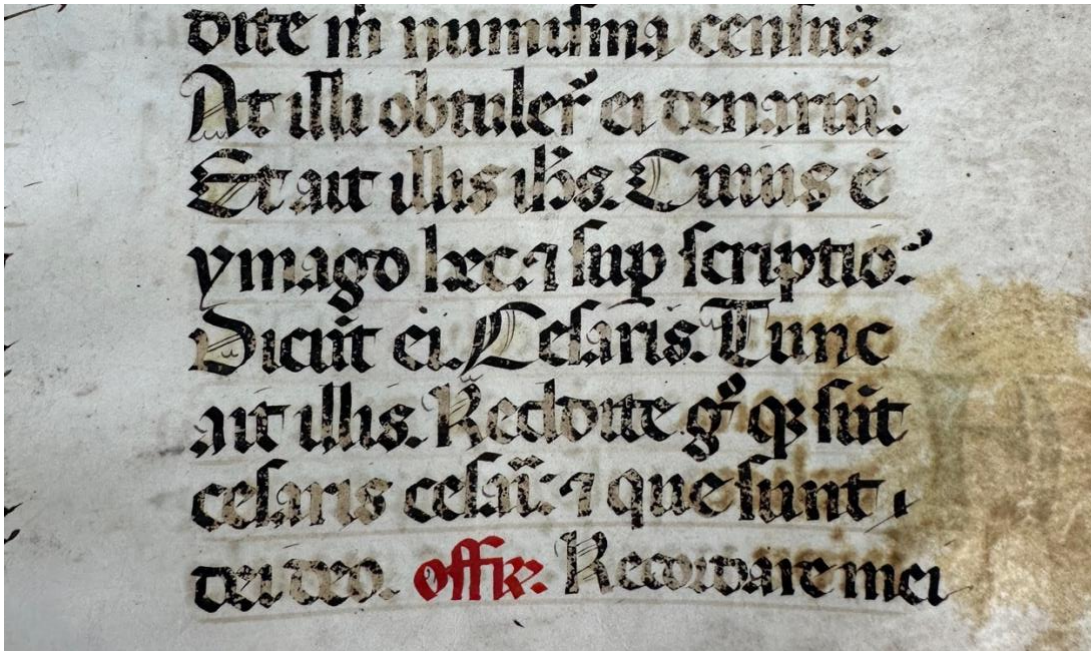 dite m̄ numisma census.
At illi obtuler̄ ei denariū:
Et ait illis ih̄s. Cuius ē
ymago hec. ⁊ sup scriptio.̉
Dicūt ei. Cesaris. Tunc
ait illis. Reddite g̊ qꝫ sūt
cesaris cesaⷩ̄: ⁊ que sunt
dei deo. offr̄. Recordare mei